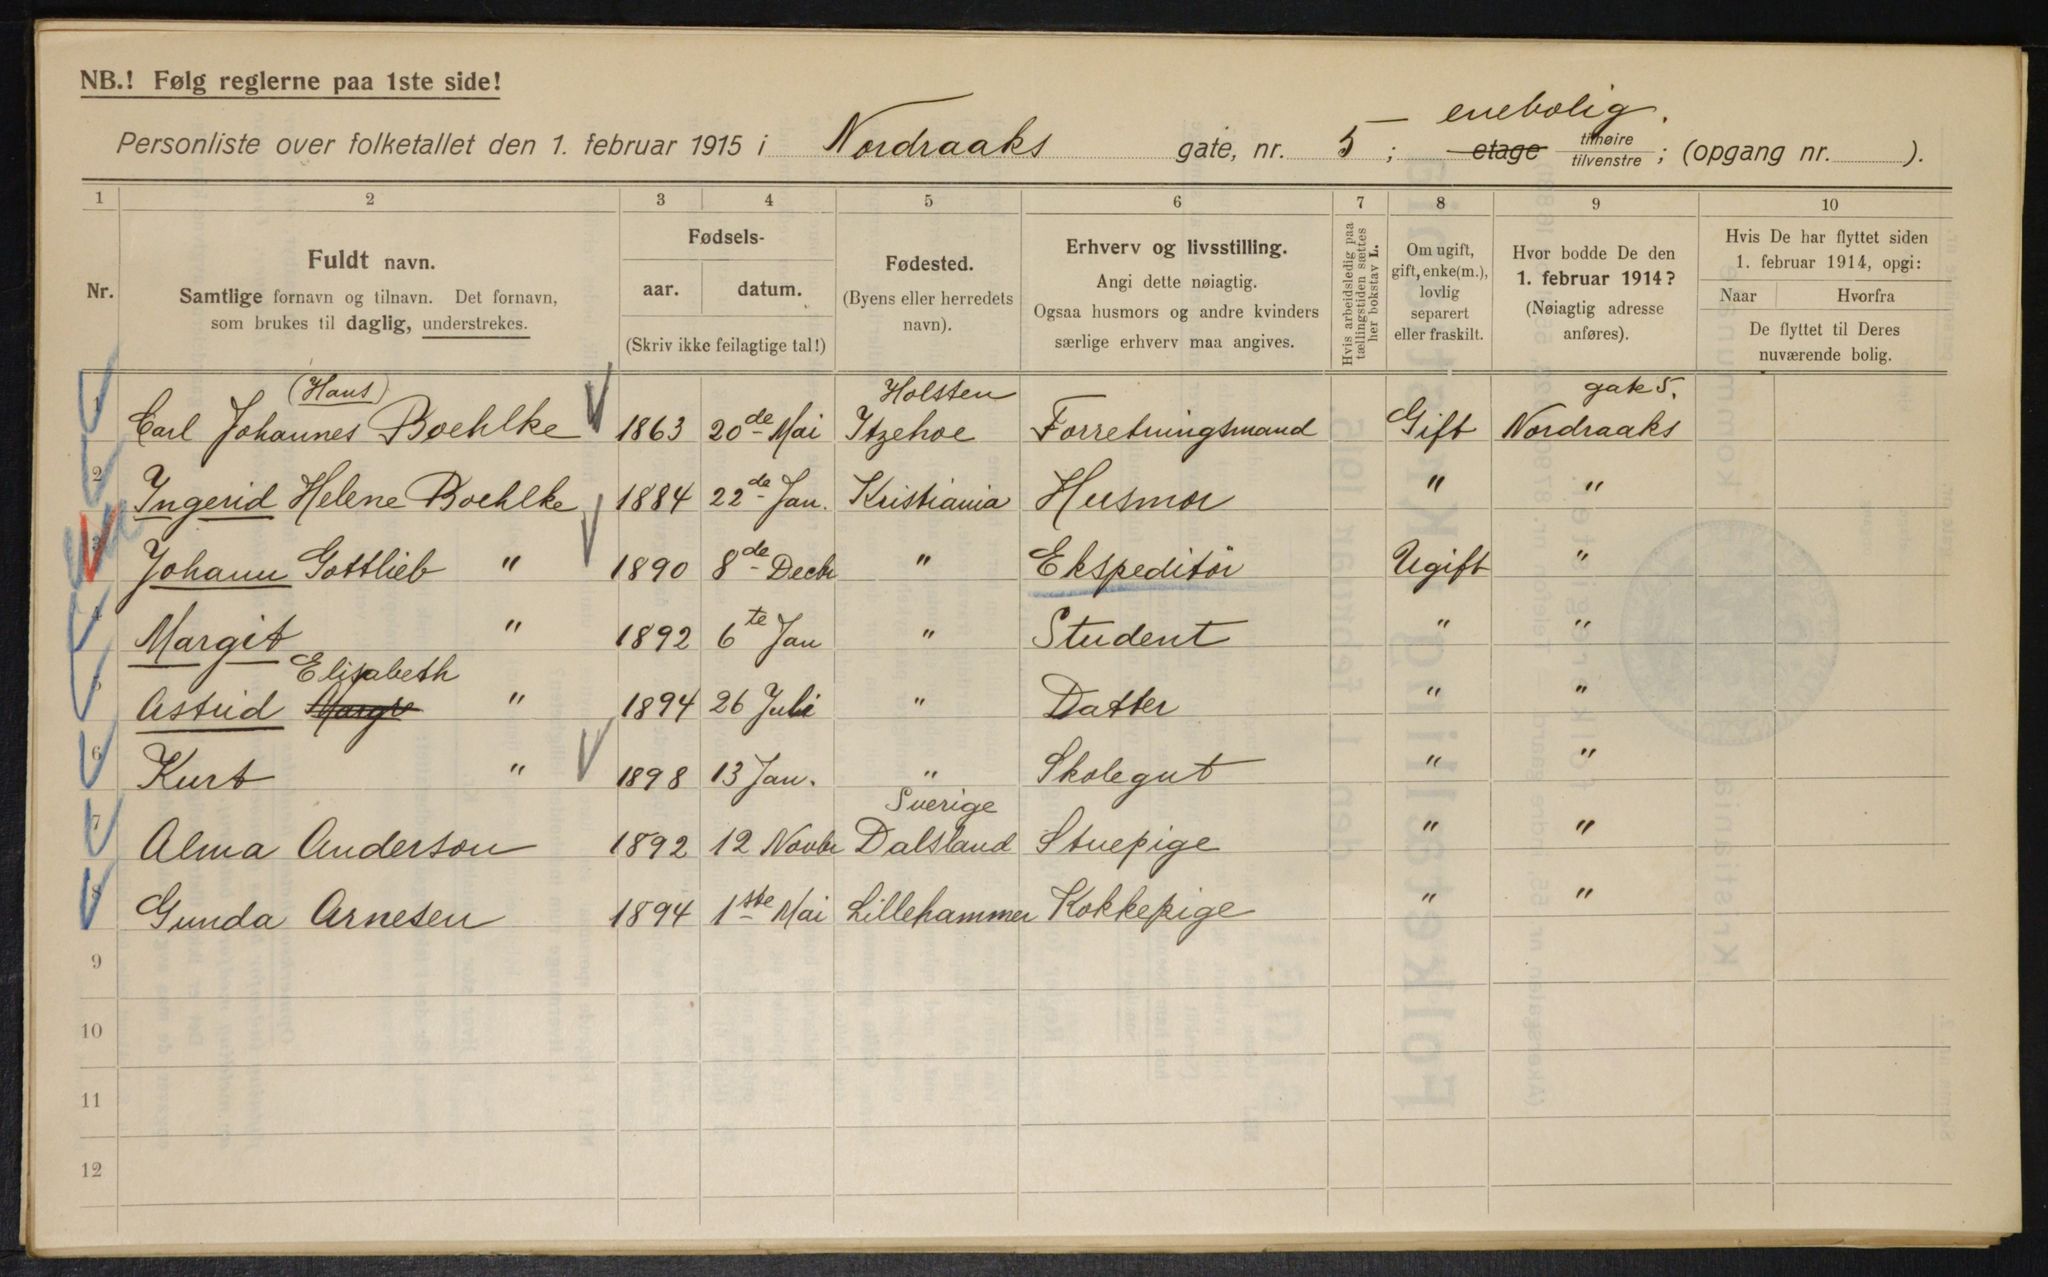 NB.! Følg reglerne paa 1ste side!
enebolig.
Personliste over folketallet den 1. februar 1915 i Nordraaks gate, nr. 5 – ; etage tilhøire tilvenstre ; (opgang nr. ).
1 2 3 4 5 6 7 8 9 10
Nr.
Fuldt navn.
Samtlige fornavn og tilnavn. Det fornavn,
som brukes til daglig, understrekes.
Fødsels-
aar. datum.
(Skriv ikke feilagtige tal!)
Fødested.
(Byens eller herredets
navn).
Erhverv og livsstilling.
Angi dette nøiagtig.
Ogsaa husmors og andre kvinders
særlige erhverv maa angives.
Hvis arbeidsledig paa
tællingstiden sættes
her bokstav L.
Om ugift,
gift, enke(m.),
lovlig
separert
eller fraskilt.
Hvor bodde De den
1. februar 1914?
(Nøiagtig adresse
anføres).
Hvis De har flyttet siden
1. februar 1914, opgi:
Naar Hvorfra
De flyttet til Deres
nuværende bolig.
(Hans) Holsten gate 5.
1 Carl Johannes Boehlke 1863 20de Mai Itzehoe Forretningsmand Gift Nordraaks
2 Ingerid Helene Boehlke 1884 22de Jan. Kristiania Husmor " "
3 Johann Gottlieb " 1890 8de Decbr " Ekspeditör Ugift "
4 Margit " 1892 6te Jan " Student " "
Elisabeth
5 Astrid Margre " 1894 26 Juli " Datter " "
6 Kurt " 1898 13 Jan. " Skolegut " "
Sverige
7 Alma Anderson 1892 12 Novbr Dalsland Stuepige " "
8 Gunda Arnesen 1894 1ste Mai Lillehammer Kokkepige " "
9
10
11
12